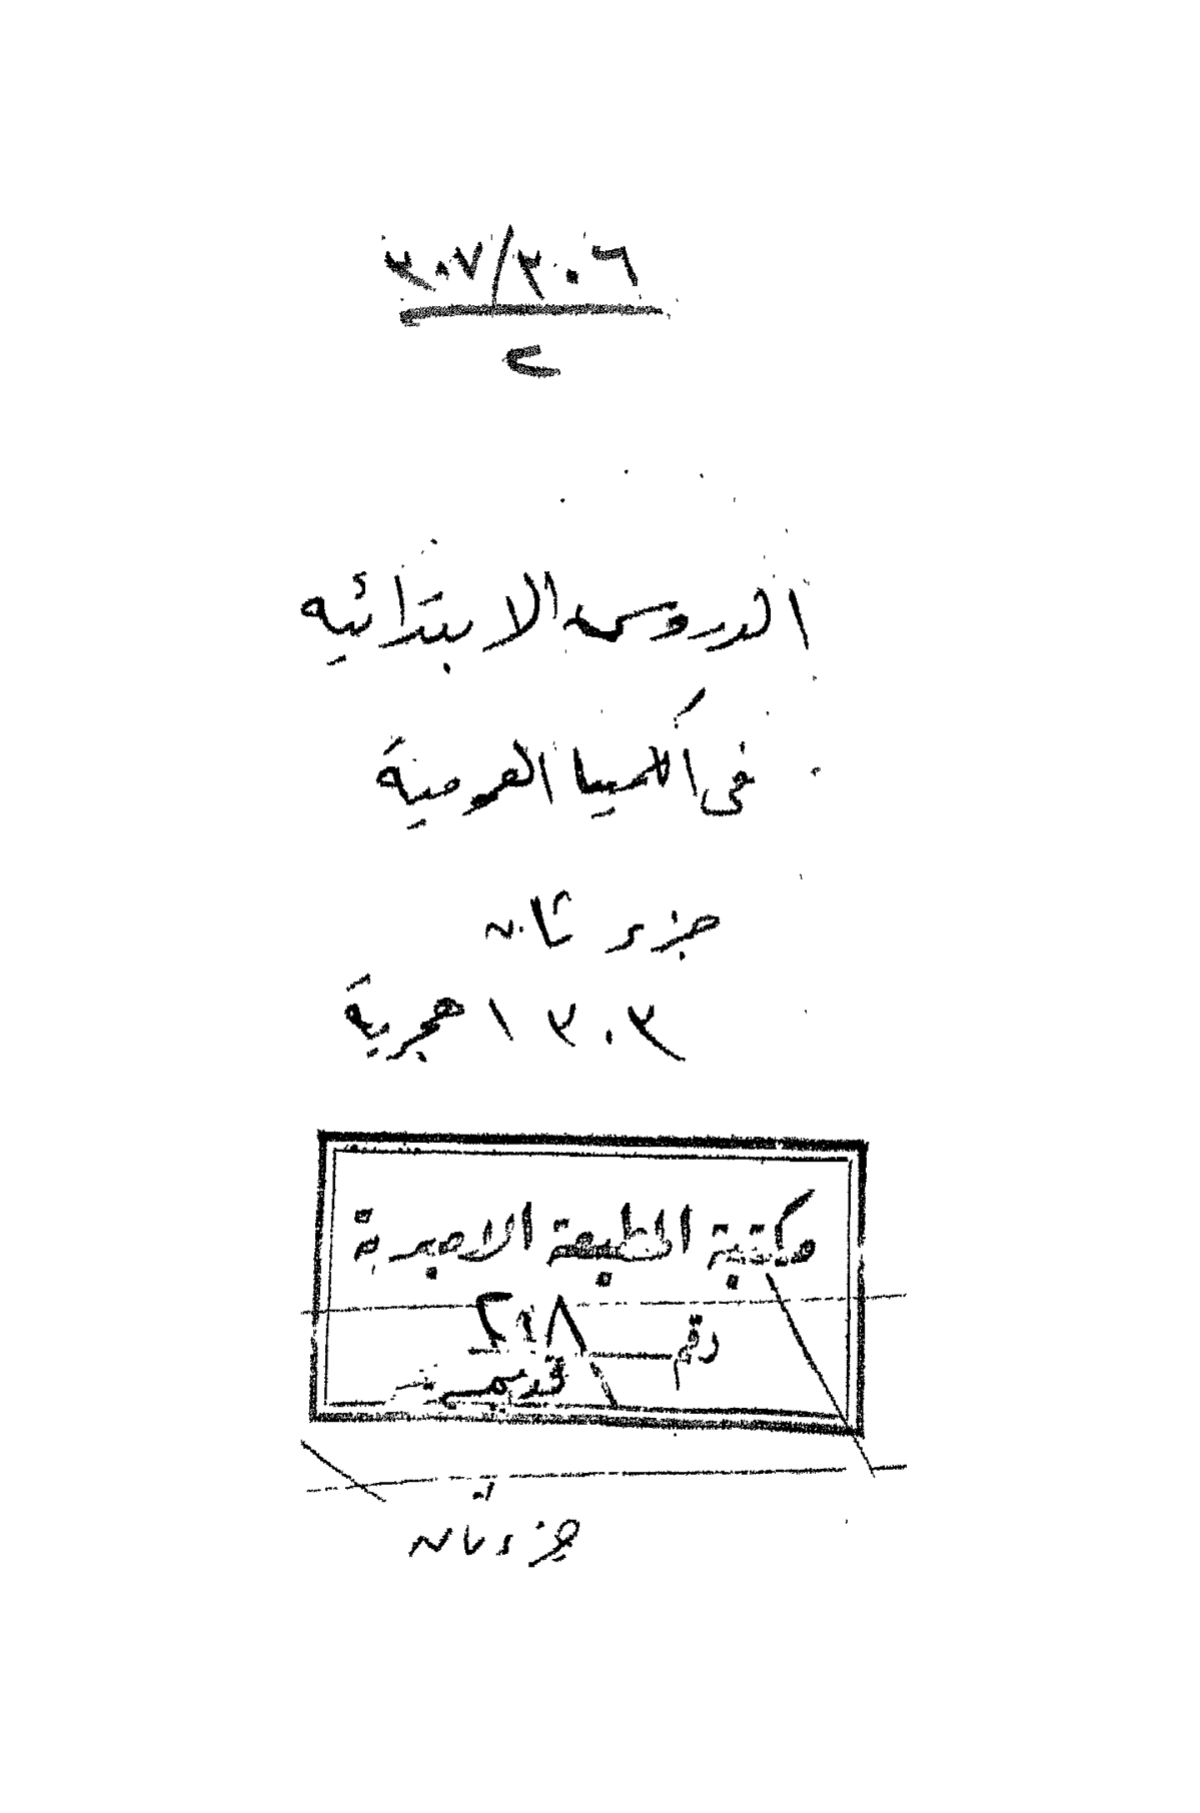 ٣٠٧/٣٠٦
٢
الدروس الابتدائيه
فى الكميا العمومية
جزء ثان
١٣٠٣ هجرية
مكتبة المطبعة الاميرية
رقم
قديم
جزء ثان